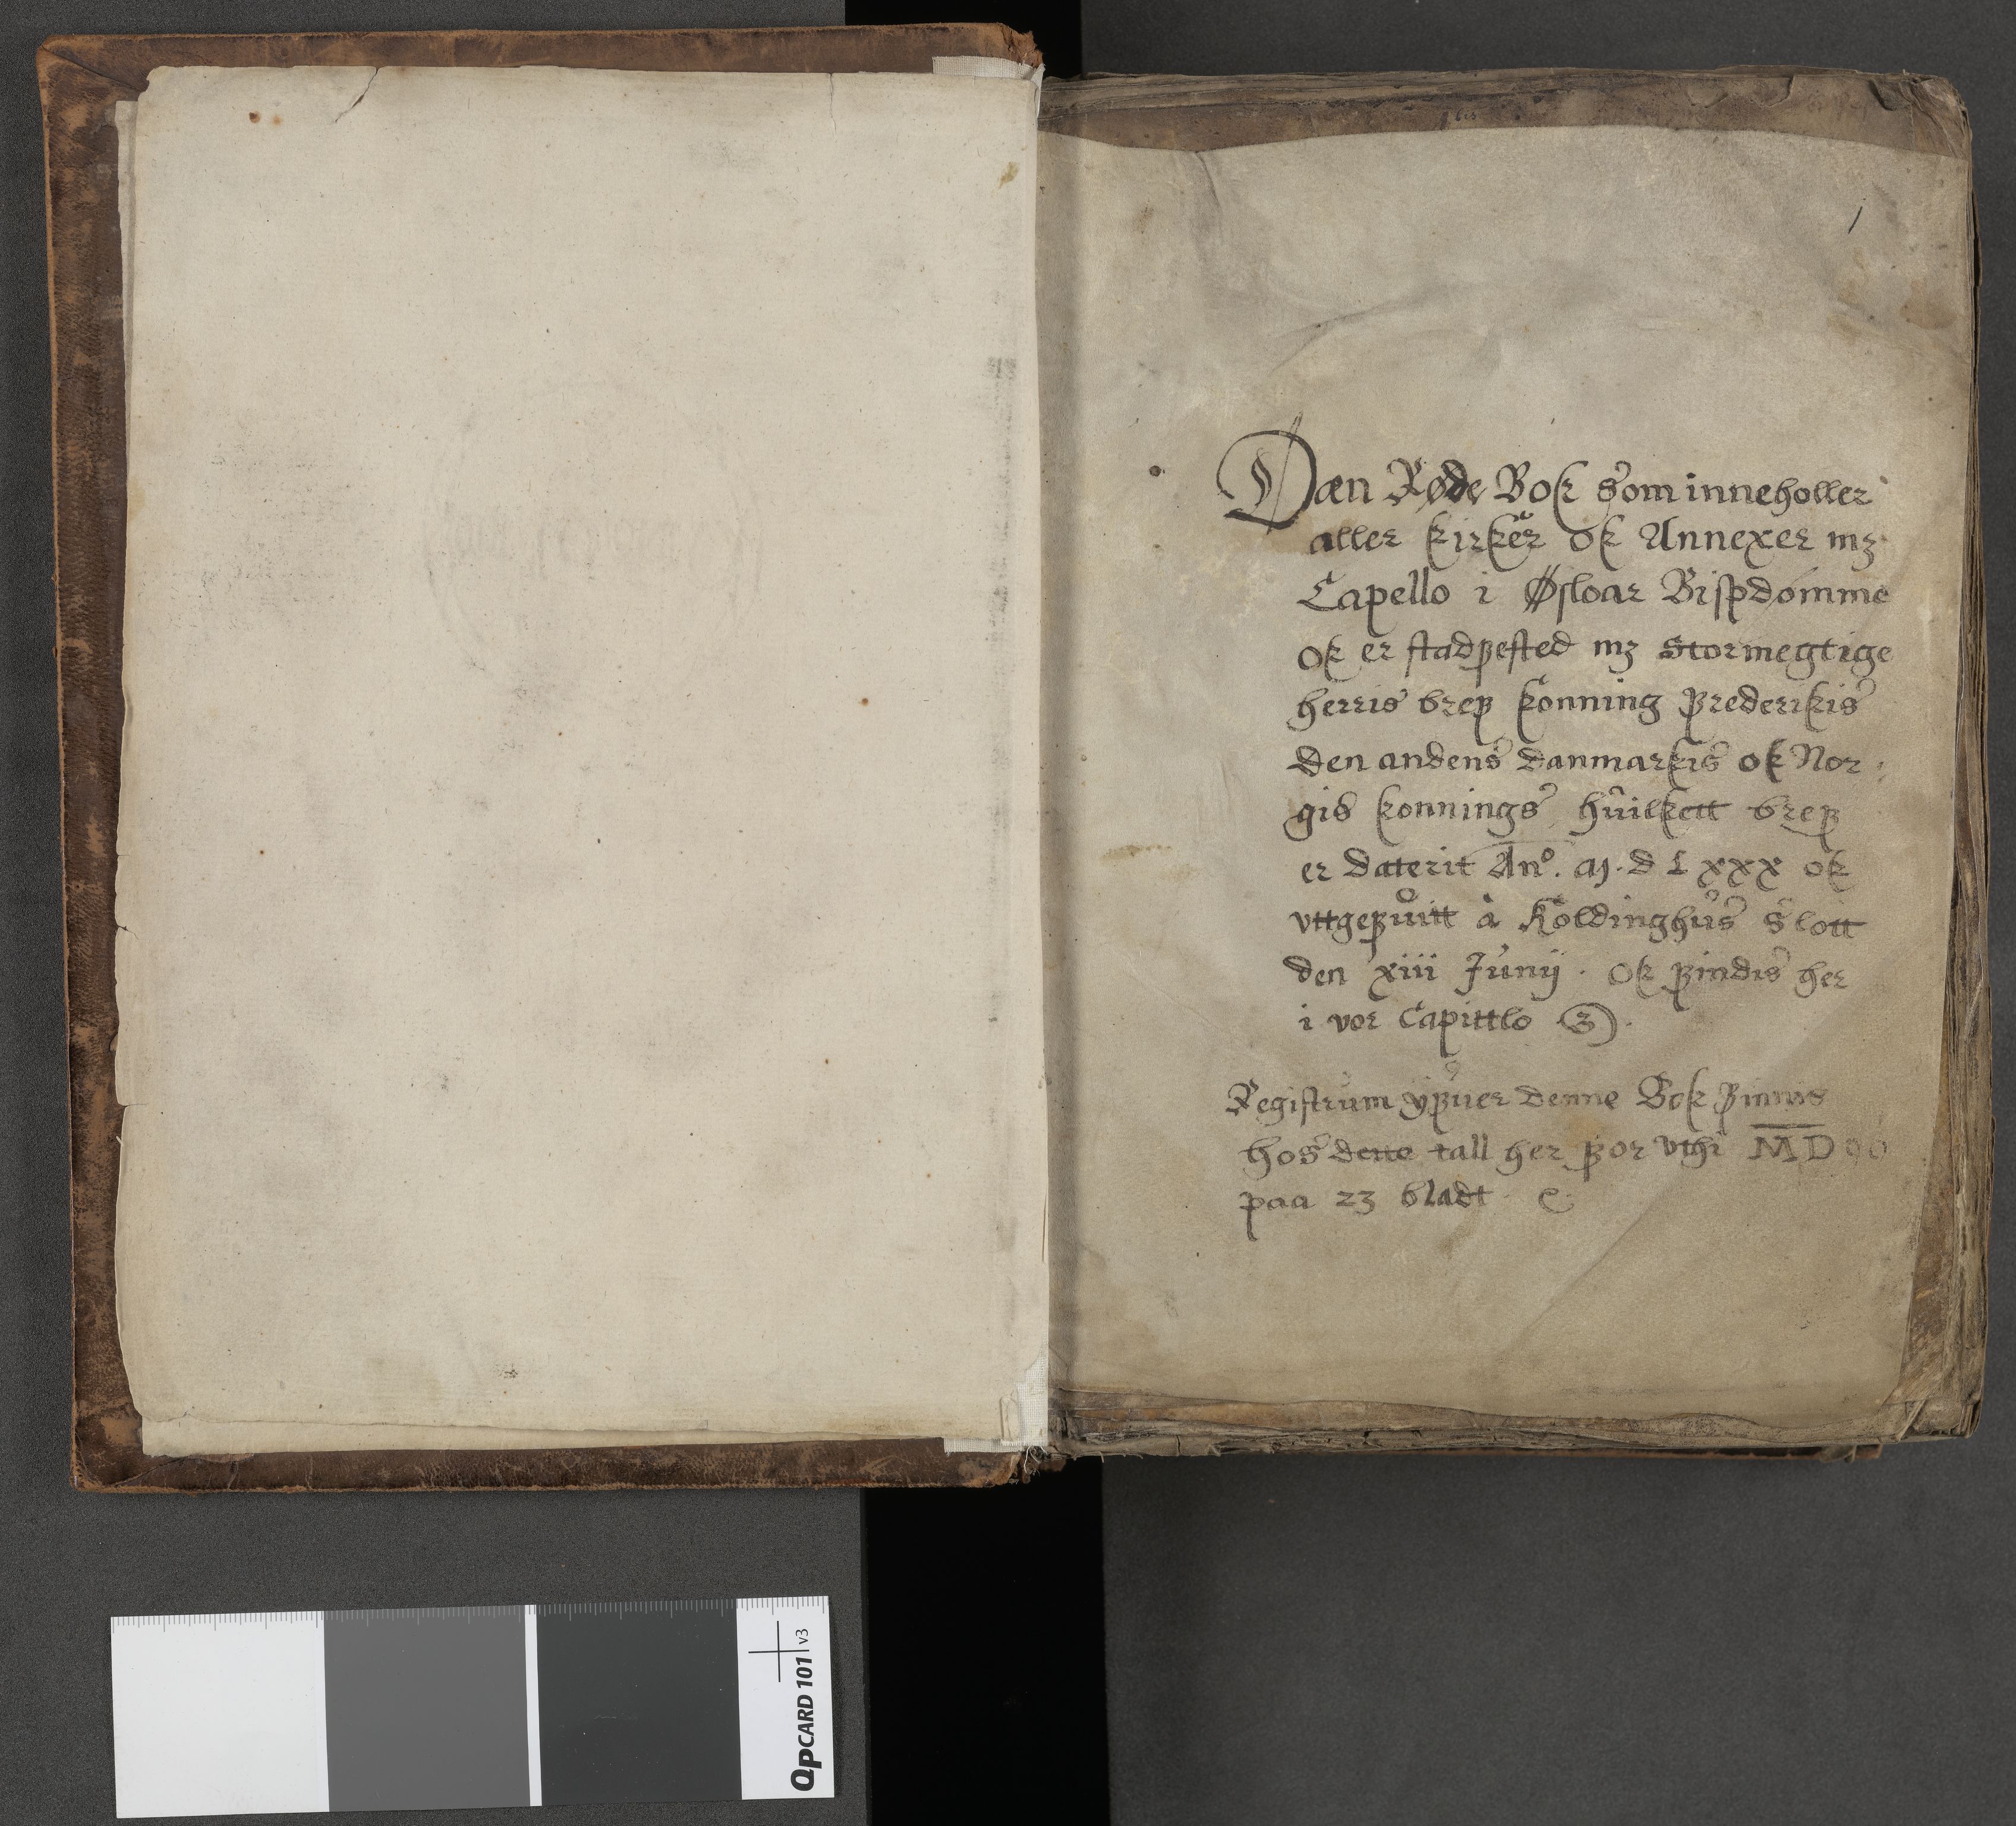 1
Dæn Røde Bok som inneholler
aller kirker ok Annexer mꝫ
Capello i Øsloar Bispdomme
ok er stadfested mꝫ stormegtige
herris bref konning frederikis
den andens danmarkis ok Nor
gis konnings huilkett bref
er daterit Anº. M.d Lxxx ok
vttgefuitt å Koldinghus slott
den xiii Junij. ok findis her
i vor Capittlo
Registrum yfuer denne Bok finnis
hos dette tall her for vthi MD90
paa 23 bladt
QPCARD 101 v3